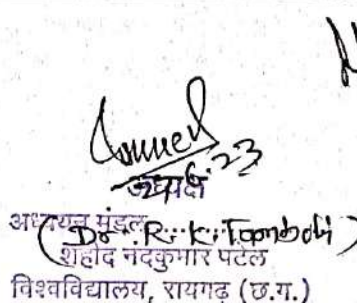 27.6.23
अध्यक्ष
अध्ययन मंडल
(Dr. R. K. Tamboli)
शहीद नंदकुमार पटेल
विश्वविद्यालय, रायगढ़ (छ.ग.)